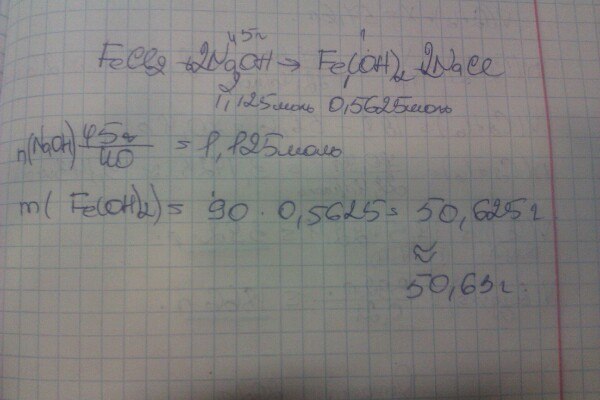 45г 1
FeCl2 + 2NaOH → Fe(OH)2 + 2NaCl
2 1
1,125моль 0,5625моль
n(NaOH) 45г/40 = 1,125моль
m(Fe(OH)2) = 90 · 0,5625 = 50,625г
≈
50,63г.